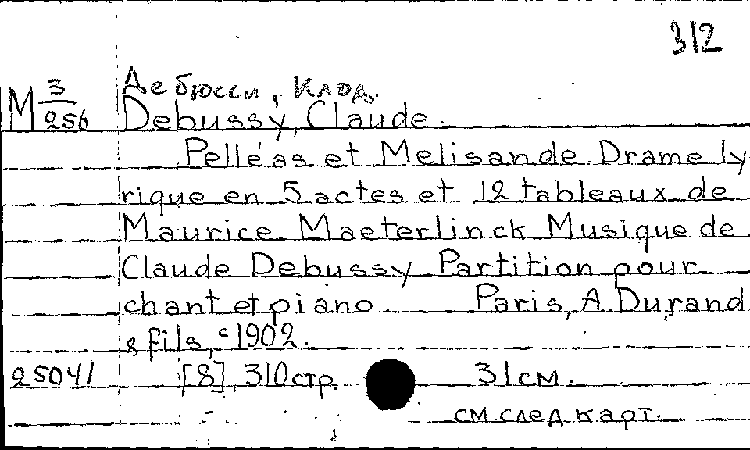 312
М 3/256 Дебюсси, Клод.
Debussy, Claude.
Pelléas et Melisande. Drame ly
rique en 5 actes et 12 tableaux de
Maurice Maeterlinck Musique de
Claude Debussy Partition pour
chant et piano Paris, A. Durand
& fils, c1902.
25041 [8], 310 стр. 31 см.
см след карт.